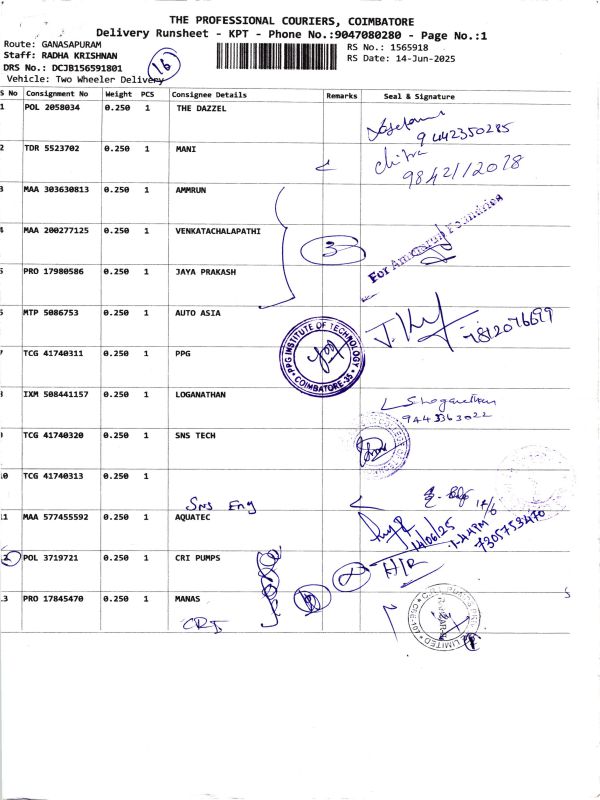 THE PROFESSIONAL COURIERS, COIMBATORE
Delivery Runsheet - KPT - Phone No.:9047080280 - Page No.:1
Route: GANASAPURAM
RS No.: 1565918
Staff: RADHA KRISHNAN
RS Date: 14-Jun-2025
DRS No.: DCJB156591801
16
Vehicle: Two Wheeler Delivery
S No Consignment No Weight PCS Consignee Details Remarks Seal & Signature
1 POL 2058034 0.250 1 THE DAZZEL
9442350285
2 TDR 5523702 0.250 1 MANI
Chitra
9842112078
3 MAA 303630813 0.250 1 AMMRUN
4 MAA 200277125 0.250 1 VENKATACHALAPATHI
3
For Ammarun Foundries
5 PRO 17980586 0.250 1 JAYA PRAKASH
6 MTP 5086753 0.250 1 AUTO ASIA
7812076699
7 TCG 41740311 0.250 1 PPG
PPG INSTITUTE OF TECHNOLOGY
COIMBATORE-35
8 IXM 508441157 0.250 1 LOGANATHAN
S Loganathan
9443363022
9 TCG 41740320 0.250 1 SNS TECH
10 TCG 41740313 0.250 1
SNS Eng
14/6
11 MAA 577455592 0.250 1 AQUATEC
14/06/25
1.44PM
7305753470
12 POL 3719721 0.250 1 CRI PUMPS
H/R
13 PRO 17845470 0.250 1 MANAS
CRI